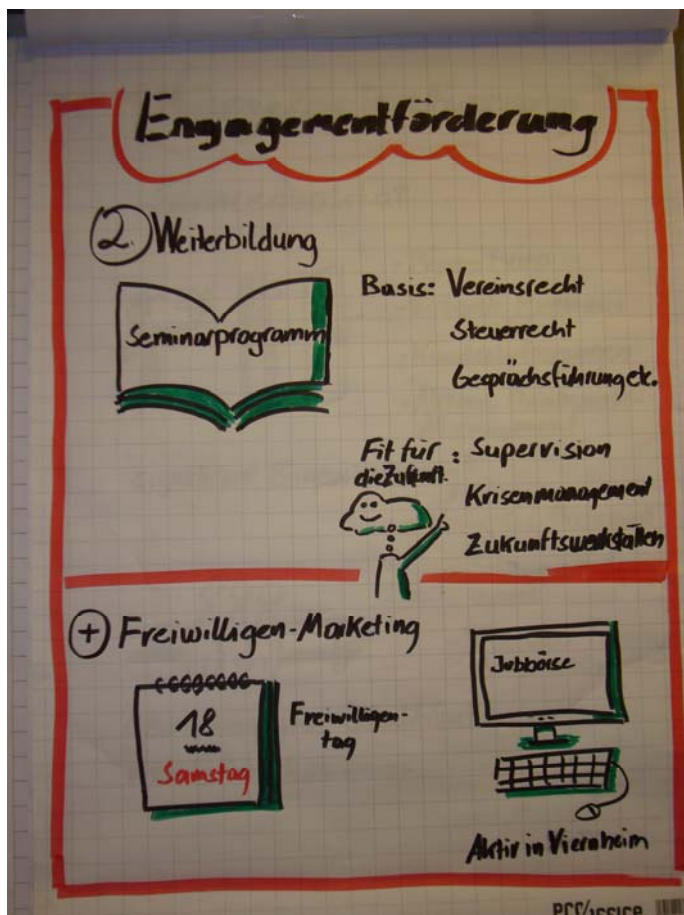 Engagementförderung
2. Weiterbildung
Seminarprogramm
Basis: Vereinsrecht
Steuerrecht
Gesprächsführung etc.
Fit für die Zukunft: Supervision
Krisenmanagement
Zukunftswerkstätten
+ Freiwilligen-Marketing
18
Samstag
Freiwilligen-
tag
Jobbörse
Aktiv in Viernheim